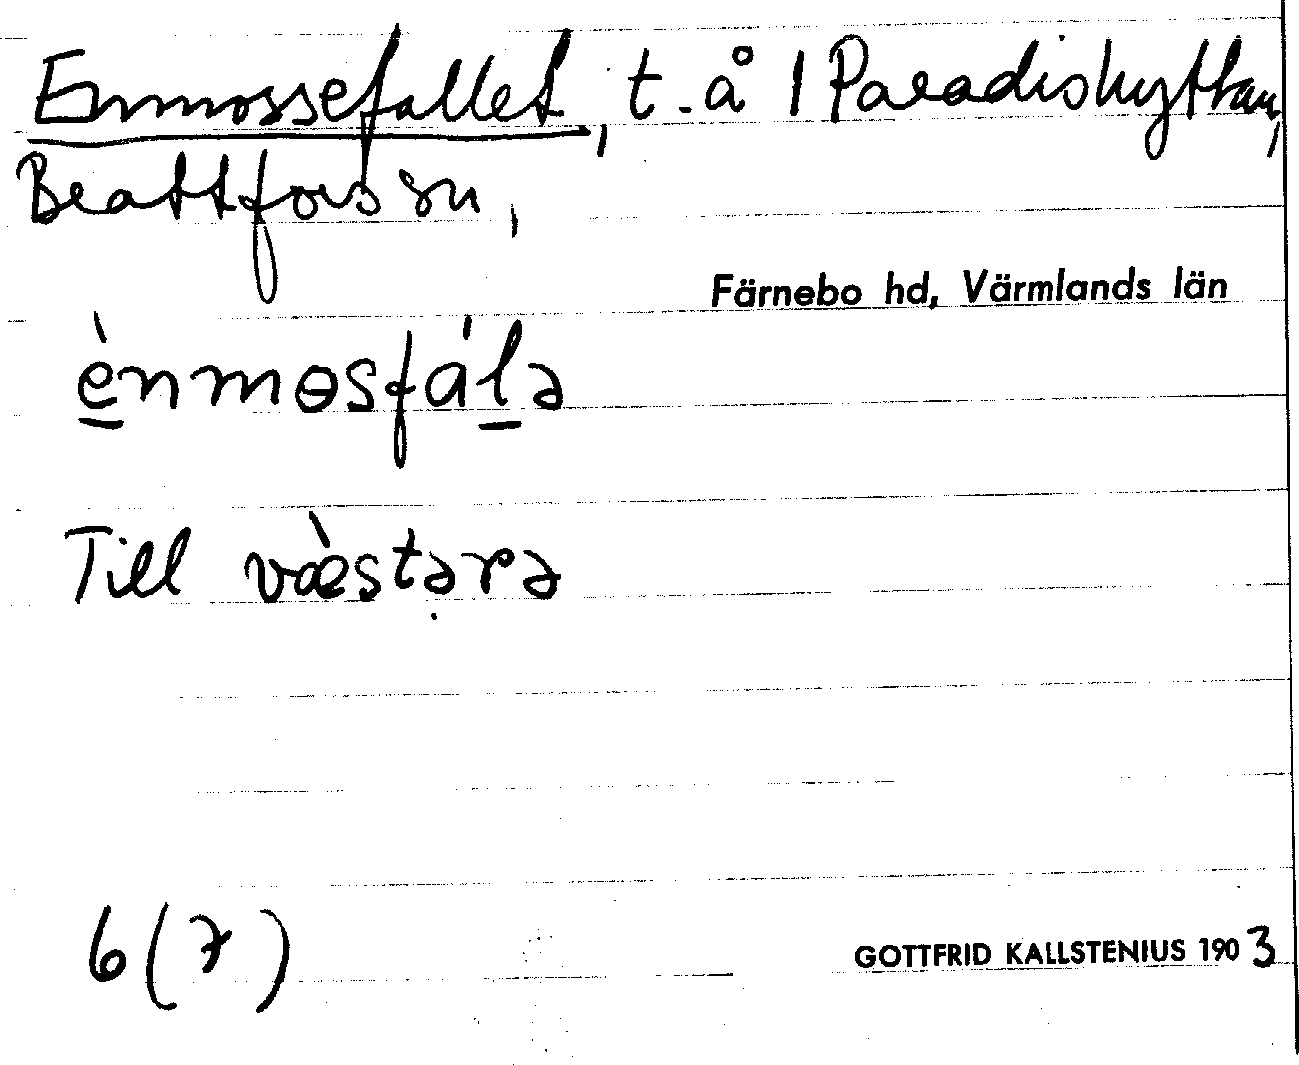 Enmossefallet, t. å 1 Paradishyttan,
Brattfors sn,
Färnebo hd, Värmlands län
ènmɵsfál̲ə
Till væ̀stə̣rə
6 (7)
GOTTFRID KALLSTENIUS 1903